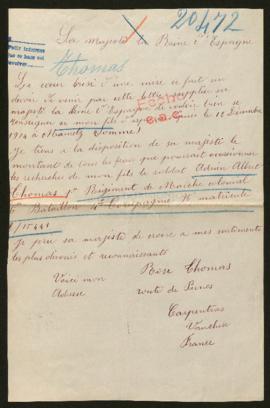 20472
Sa majesté la Reine d'Espagne
Thomas
Le cœur brisé d'une mère se fait un
devoir de venir par cette lettre supplier sa
majesté la Reine d'Espagne de vouloir bien se
renseigner sur mon fils disparu depuis le 17 Décembre
1914 à Mametz (Somme)
FECHO
Je tiens a la disposition de sa majesté le
montant de tous les frais que pourrait occasionner
les recherches de mon fils le soldat Adrien Albert
Thomas 1er Régiment de Marche colonial
Bataillon 4e Compagnie No matricule
Je prie sa majesté de croire a mes sentiments
les plus dévoués et reconnaissants
Voici mon Rose Thomas
Adresse route de Pernes
Carpentras
Vaucluse
France